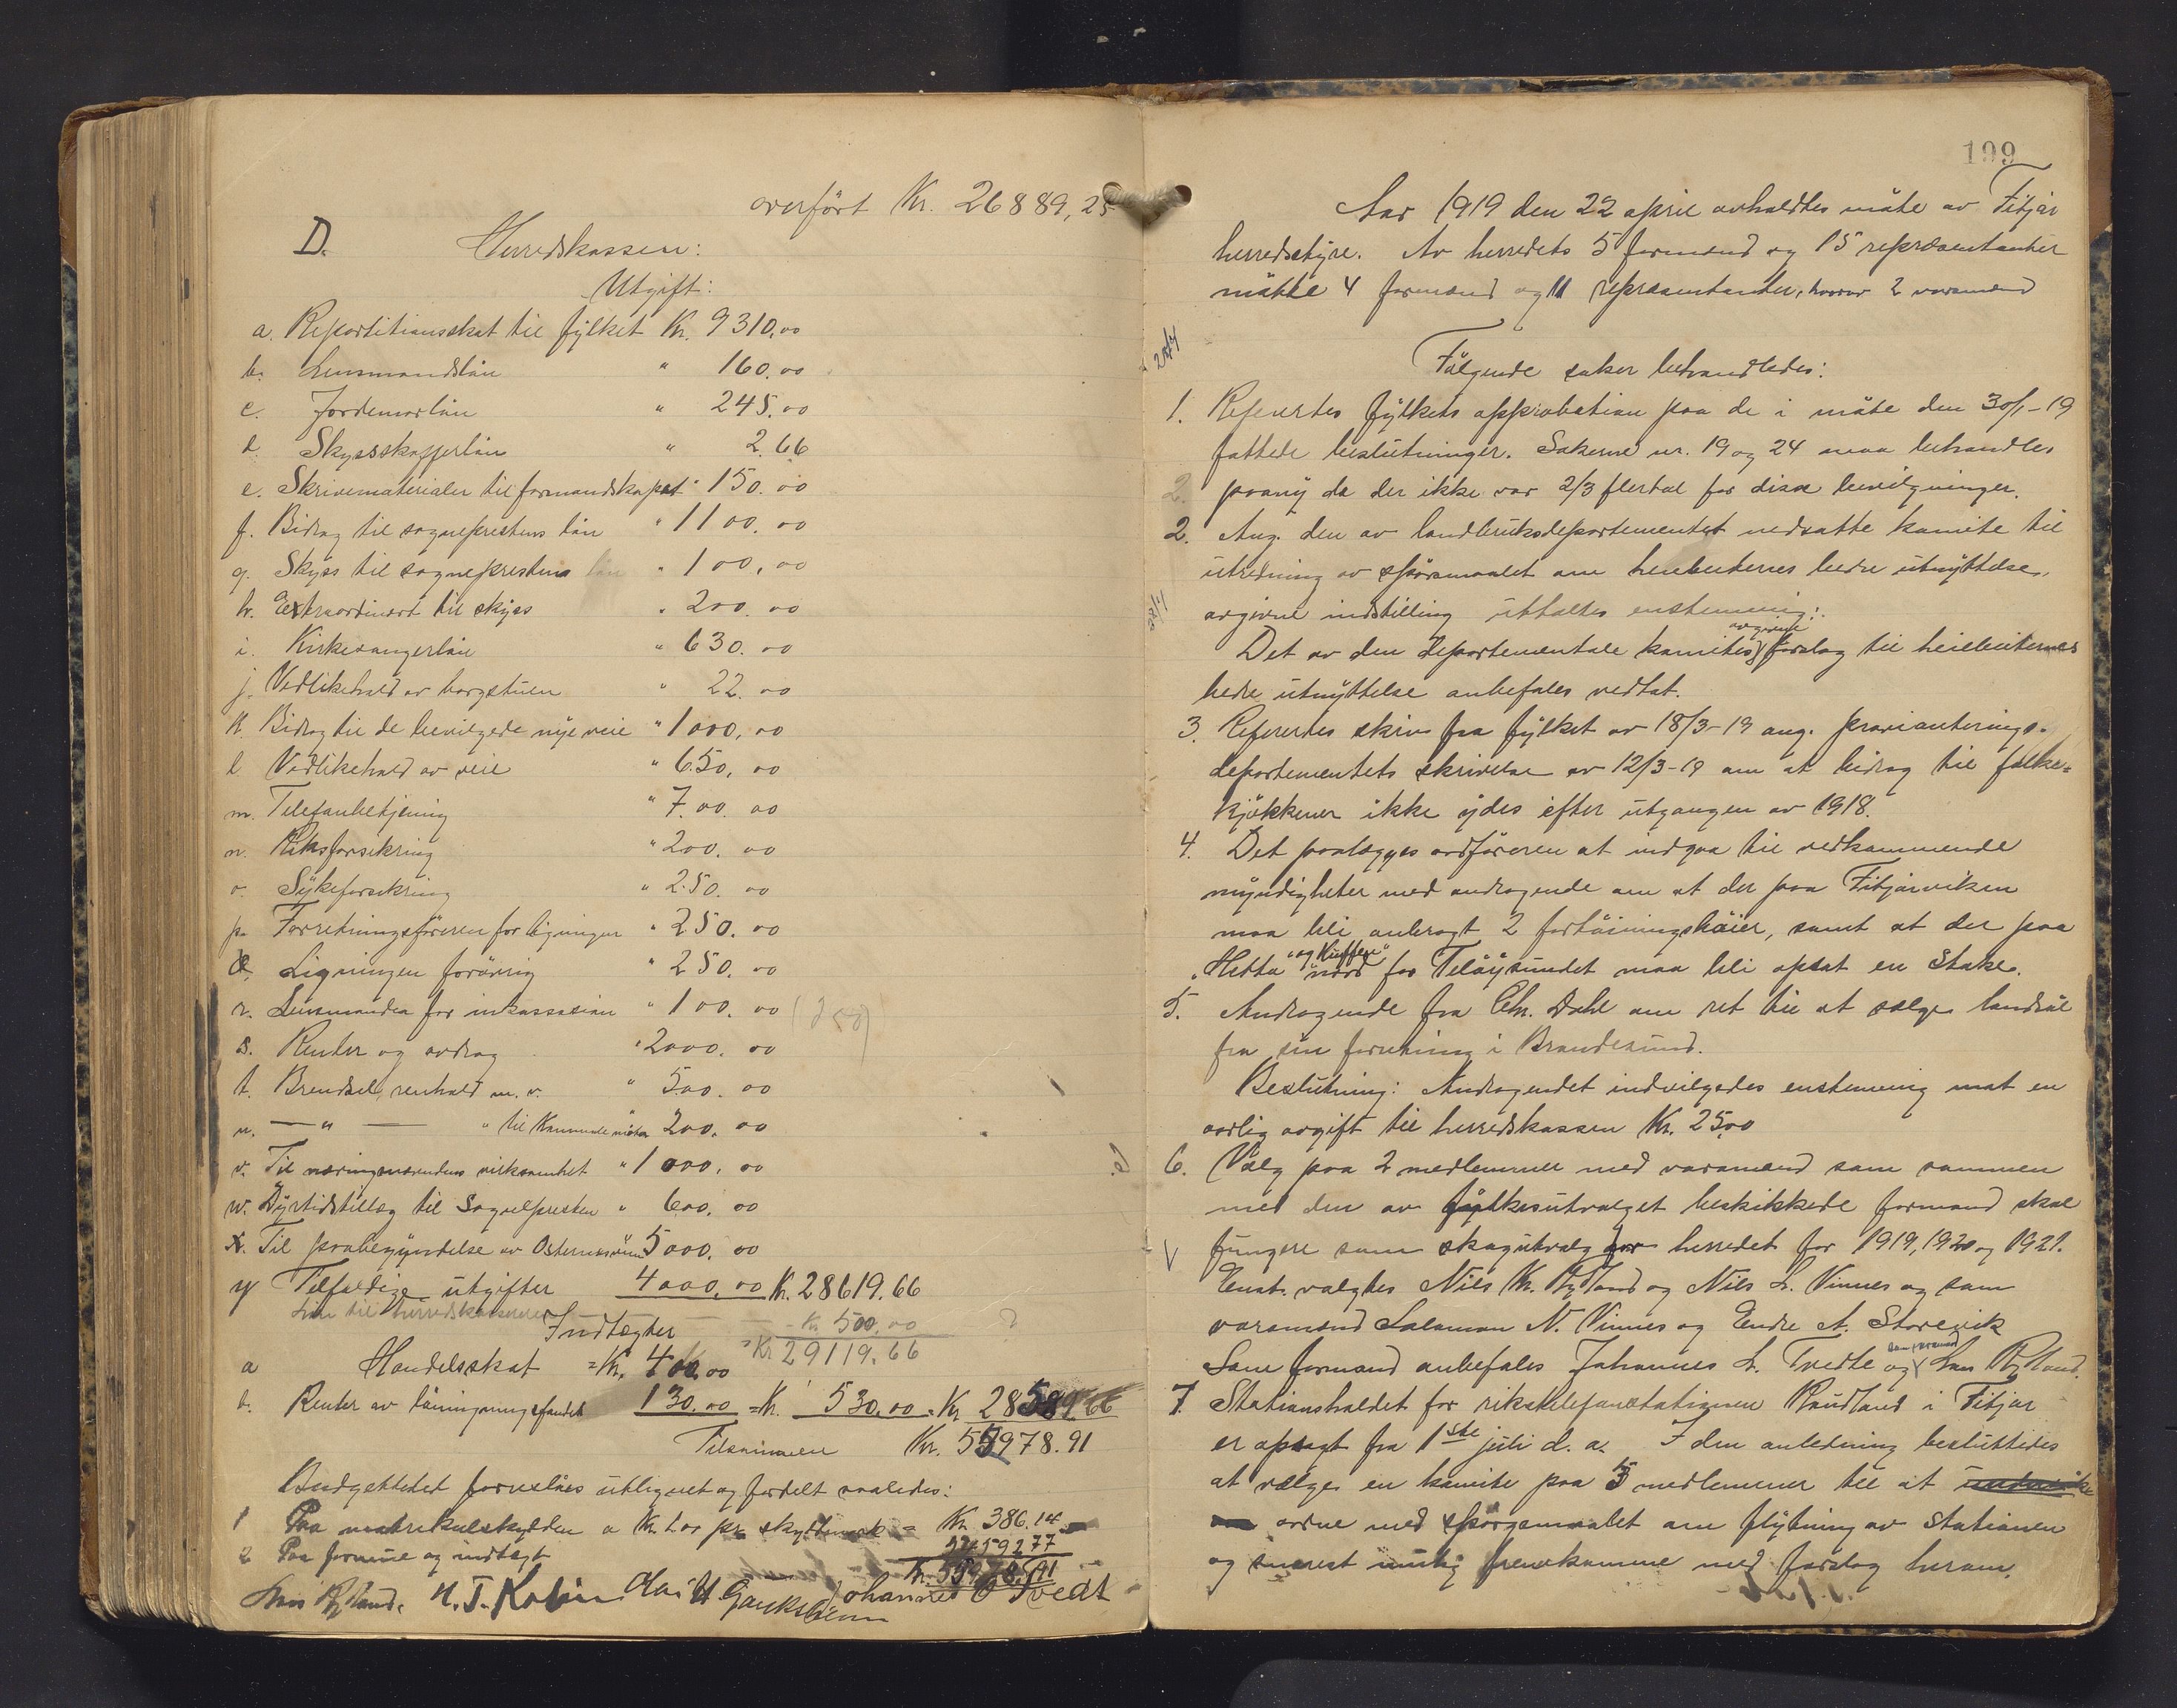 overført Kr. 26889,25
D. Herredskassen:
Utgift:
a. Repartitionsskat til fylket Kr. 9310,00
b. Lensmandsløn " 160.00
c. Jordemorløn " 245.00
d. Skysskafferløn " 2.66
e. Skrivematerialer til formandskapet " 150.00
f. Bidrag til sogneprestens løn " 1100.00
g. Skyss til sogneprestens løn " 100.00
h. Extraordinært til skyss " 200.00
i. Kirkesangerløn " 630.00
j. Vedlikehold av borgstuen " 22.00
k. Bidrag til de bevilgede nye veie " 1000,00
l Vedlikehold av veie " 650,00
m. Telefonbetjening " 700.00
n. Riksforsikring " 200.00
o. Sykeforsikring " 250.00
p. Forretningsføreren for ligningen " 250.00
q. Ligningen forøvrig " 250.00
r. Lensmanden for inkassasion " 100.00 (200)
s. Renter og avdrag " 2000.00
t. Brendsel, renhold m. v. " 500.00
u. — " — " til Kommunelokalet 200.00
v. Til næringsnævndens virksomhet " 1000,00
w. Dyrtidstillæg til Sognepresten " 600.00
x. Til paabegyndelse av 5000.00
y Tilfældige utgifter 4000,00 K. 28619.66
Løn til herredskassereren - Kr 500,00
Indtægter = Kr 29119.66
a Handelsskat = Kr. 400,00
b. Renter av 130.00 = K. 530.00 = Kr 28589.66
Tilsammen Kr. 55978.91
Budgettet foreslåes utlignet og fordelt saaledes:
1 Paa matrikulskylden a Kr 1.00 pr. skyldmark = Kr. 386.14
2 Paa formue og indtægt
Kr. 55978.91
Lars Rydland. N. T. Johannes O Tvedt
199
Aar 1919 den 22 april avholdtes møte av Fitjar
herredsstyre. Av herredets 5 formænd og 15 repræsentanter
møtte 4 formænd og 11 repræsentanter, hvorav 2 varamænd
Følgende saker behandledes:
1. Refertes fylkets approbation paa de i møte den 30/1-19
fattede beslutninger. Sakerne nr. 19 og 24 maa behandles
paany da der ikke var 2/3 flertal for disse bevilgninger.
2. Ang. den av landbruksdepartementet nedsatte komite til
utredning av spørsmaalet om beiternes bedre utnyttelse,
avgivne indstilling uttaltes enstemmig:
Det av den departementale komites avgivne forslag til beiternes
bedre utnyttelse anbefales vedtat.
3. Refererdes skriv fra fylket av 18/3-19 ang. provianterings-
departementets skrivelse av 12/3-19 om at bidrag til folke=
kjøkkener ikke ydes efter utgangen av 1918.
4. Det paalægges ordføreren at indgaa til vedkommende
myndigheter med andragende om at der paa Fitjarviken
maa bli anbragt 2 fortøiningsbøier, samt at der paa
"Hetta" "og Kuffen" nord for Teløysundet maa bli opsat en Stake.
5. Andragende fra Chr. Dahl om ret til at sælge landøl
fra sin forretning i Brandesund.
Beslutning: Andragendet indvilgedes enstemmig mot en
aarlig avgift til herredskassen Kr. 25,00
6. Valg paa 2 medlemmer med varamænd som sammen
med den av fylkesutvalget beskikkede formand skal
fungere som skogutvalg for herredet for 1919, 1920 og 1921.
Enst. valgtes Nils K. Rydland og Nils L. Vinnes og som
varamænd Salamon N. Vinnes og Endre A. Storevik
Som formand anbefales Johannes L. Tvedte og som varamand Lars Rydland.
7. Stationsholdet for rikstelefonstationen Raudland i Fitjar
er opsagt fra 1ste juli d. a. I den anledning besluttedes
at vælge en komite paa 5 medlemmer til at
ordne med spørgsmaalet om flytning av stationen
og snarest mulig fremkomme med forslag herom.